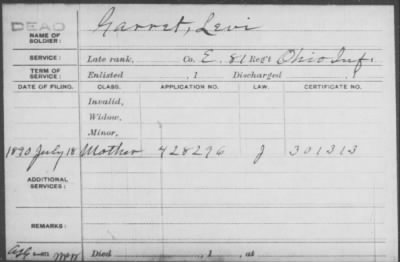 DEAD
NAME OF SOLDIER: Garret, Levi
SERVICE: Late rank, Co. E. 81 Reg't Ohio Inf.
TERM OF SERVICE: Enlisted , 1 Discharged , 1
DATE OF FILING. CLASS. APPLICATION NO. LAW. CERTIFICATE NO.
Invalid,
Widow,
Minor,
1890 July 18 Mother 428296 J 301313
ADDITIONAL SERVICES:
REMARKS:
Died , 1 , at